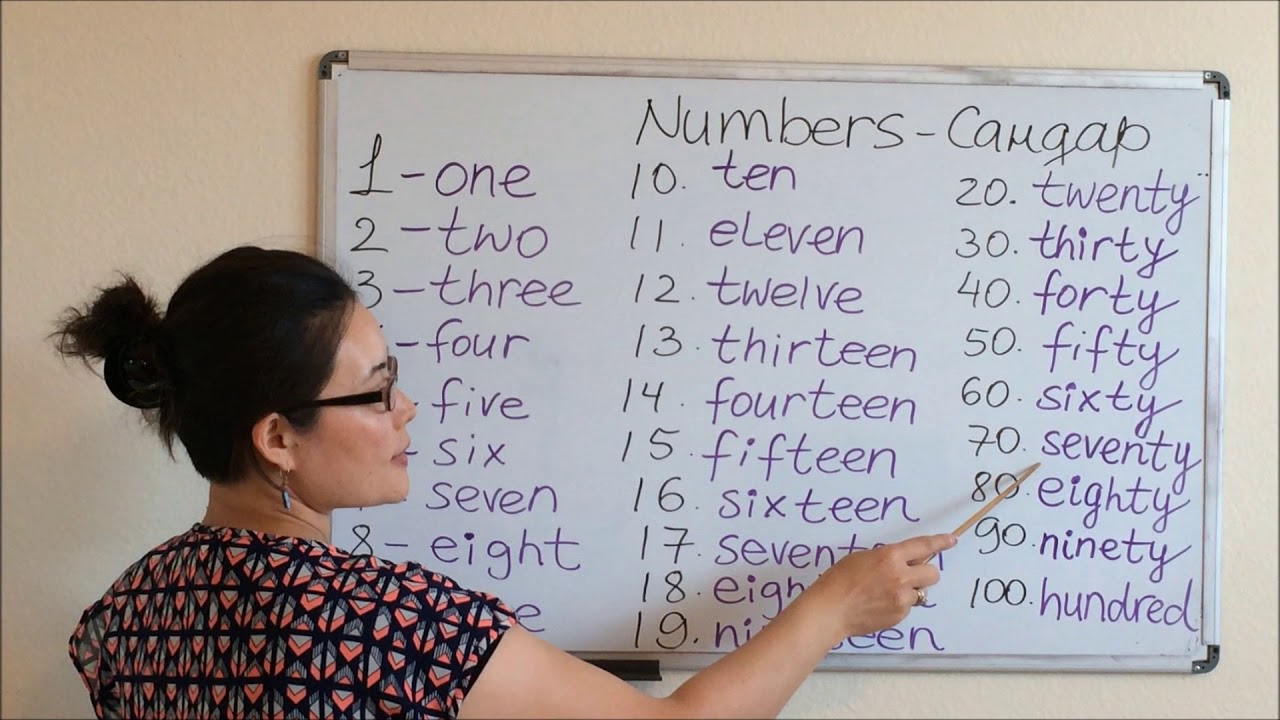 Numbers - Сандар
1 - one
2 - two
3 - three
- four
- five
- six
seven
8 - eight
10. ten
11. eleven
12. twelve
13. thirteen
14. fourteen
15. fifteen
16. sixteen
17.
18.
19.
20. twenty
30. thirty
40. forty
50. fifty
60. sixty
70. seventy
80. eighty
90. ninety
100. hundred